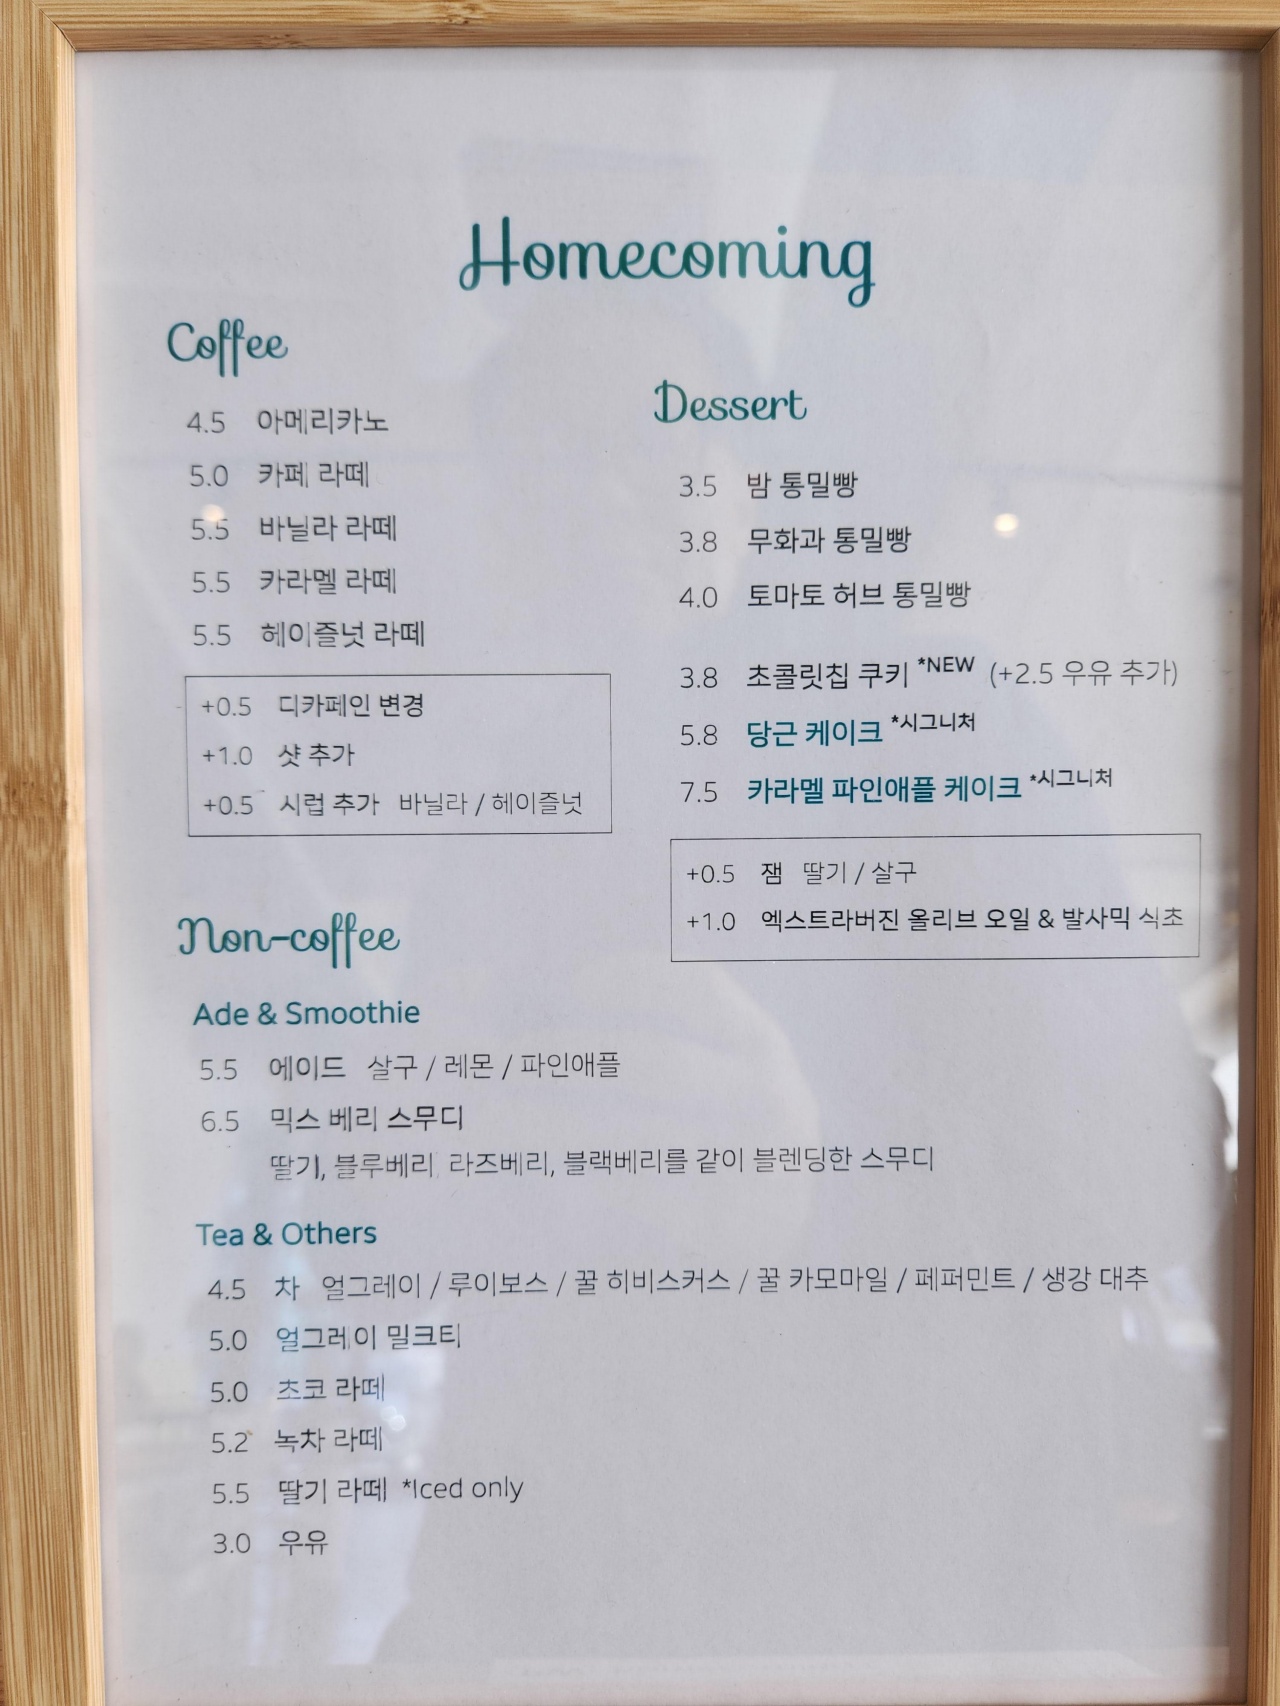 Homecoming
Coffee
4.5 아메리카노
5.0 카페 라떼
5.5 바닐라 라떼
5.5 카라멜 라떼
5.5 헤이즐넛 라떼
+0.5 디카페인 변경
+1.0 샷 추가
+0.5 시럽 추가 바닐라 / 헤이즐넛
Non-coffee
Ade & Smoothie
5.5 에이드 살구 / 레몬 / 파인애플
6.5 믹스 베리 스무디
딸기, 블루베리, 라즈베리, 블랙베리를 같이 블렌딩한 스무디
Tea & Others
4.5 차 얼그레이 / 루이보스 / 꿀 히비스커스 / 꿀 카모마일 / 페퍼민트 / 생강 대추
5.0 얼그레이 밀크티
5.0 초코 라떼
5.2 녹차 라떼
5.5 딸기 라떼 *Iced only
3.0 우유
Dessert
3.5 밤 통밀빵
3.8 무화과 통밀빵
4.0 토마토 허브 통밀빵
3.8 초콜릿칩 쿠키 *NEW (+2.5 우유 추가)
5.8 당근 케이크 *시그니처
7.5 카라멜 파인애플 케이크 *시그니처
+0.5 잼 딸기 / 살구
+1.0 엑스트라버진 올리브 오일 & 발사믹 식초